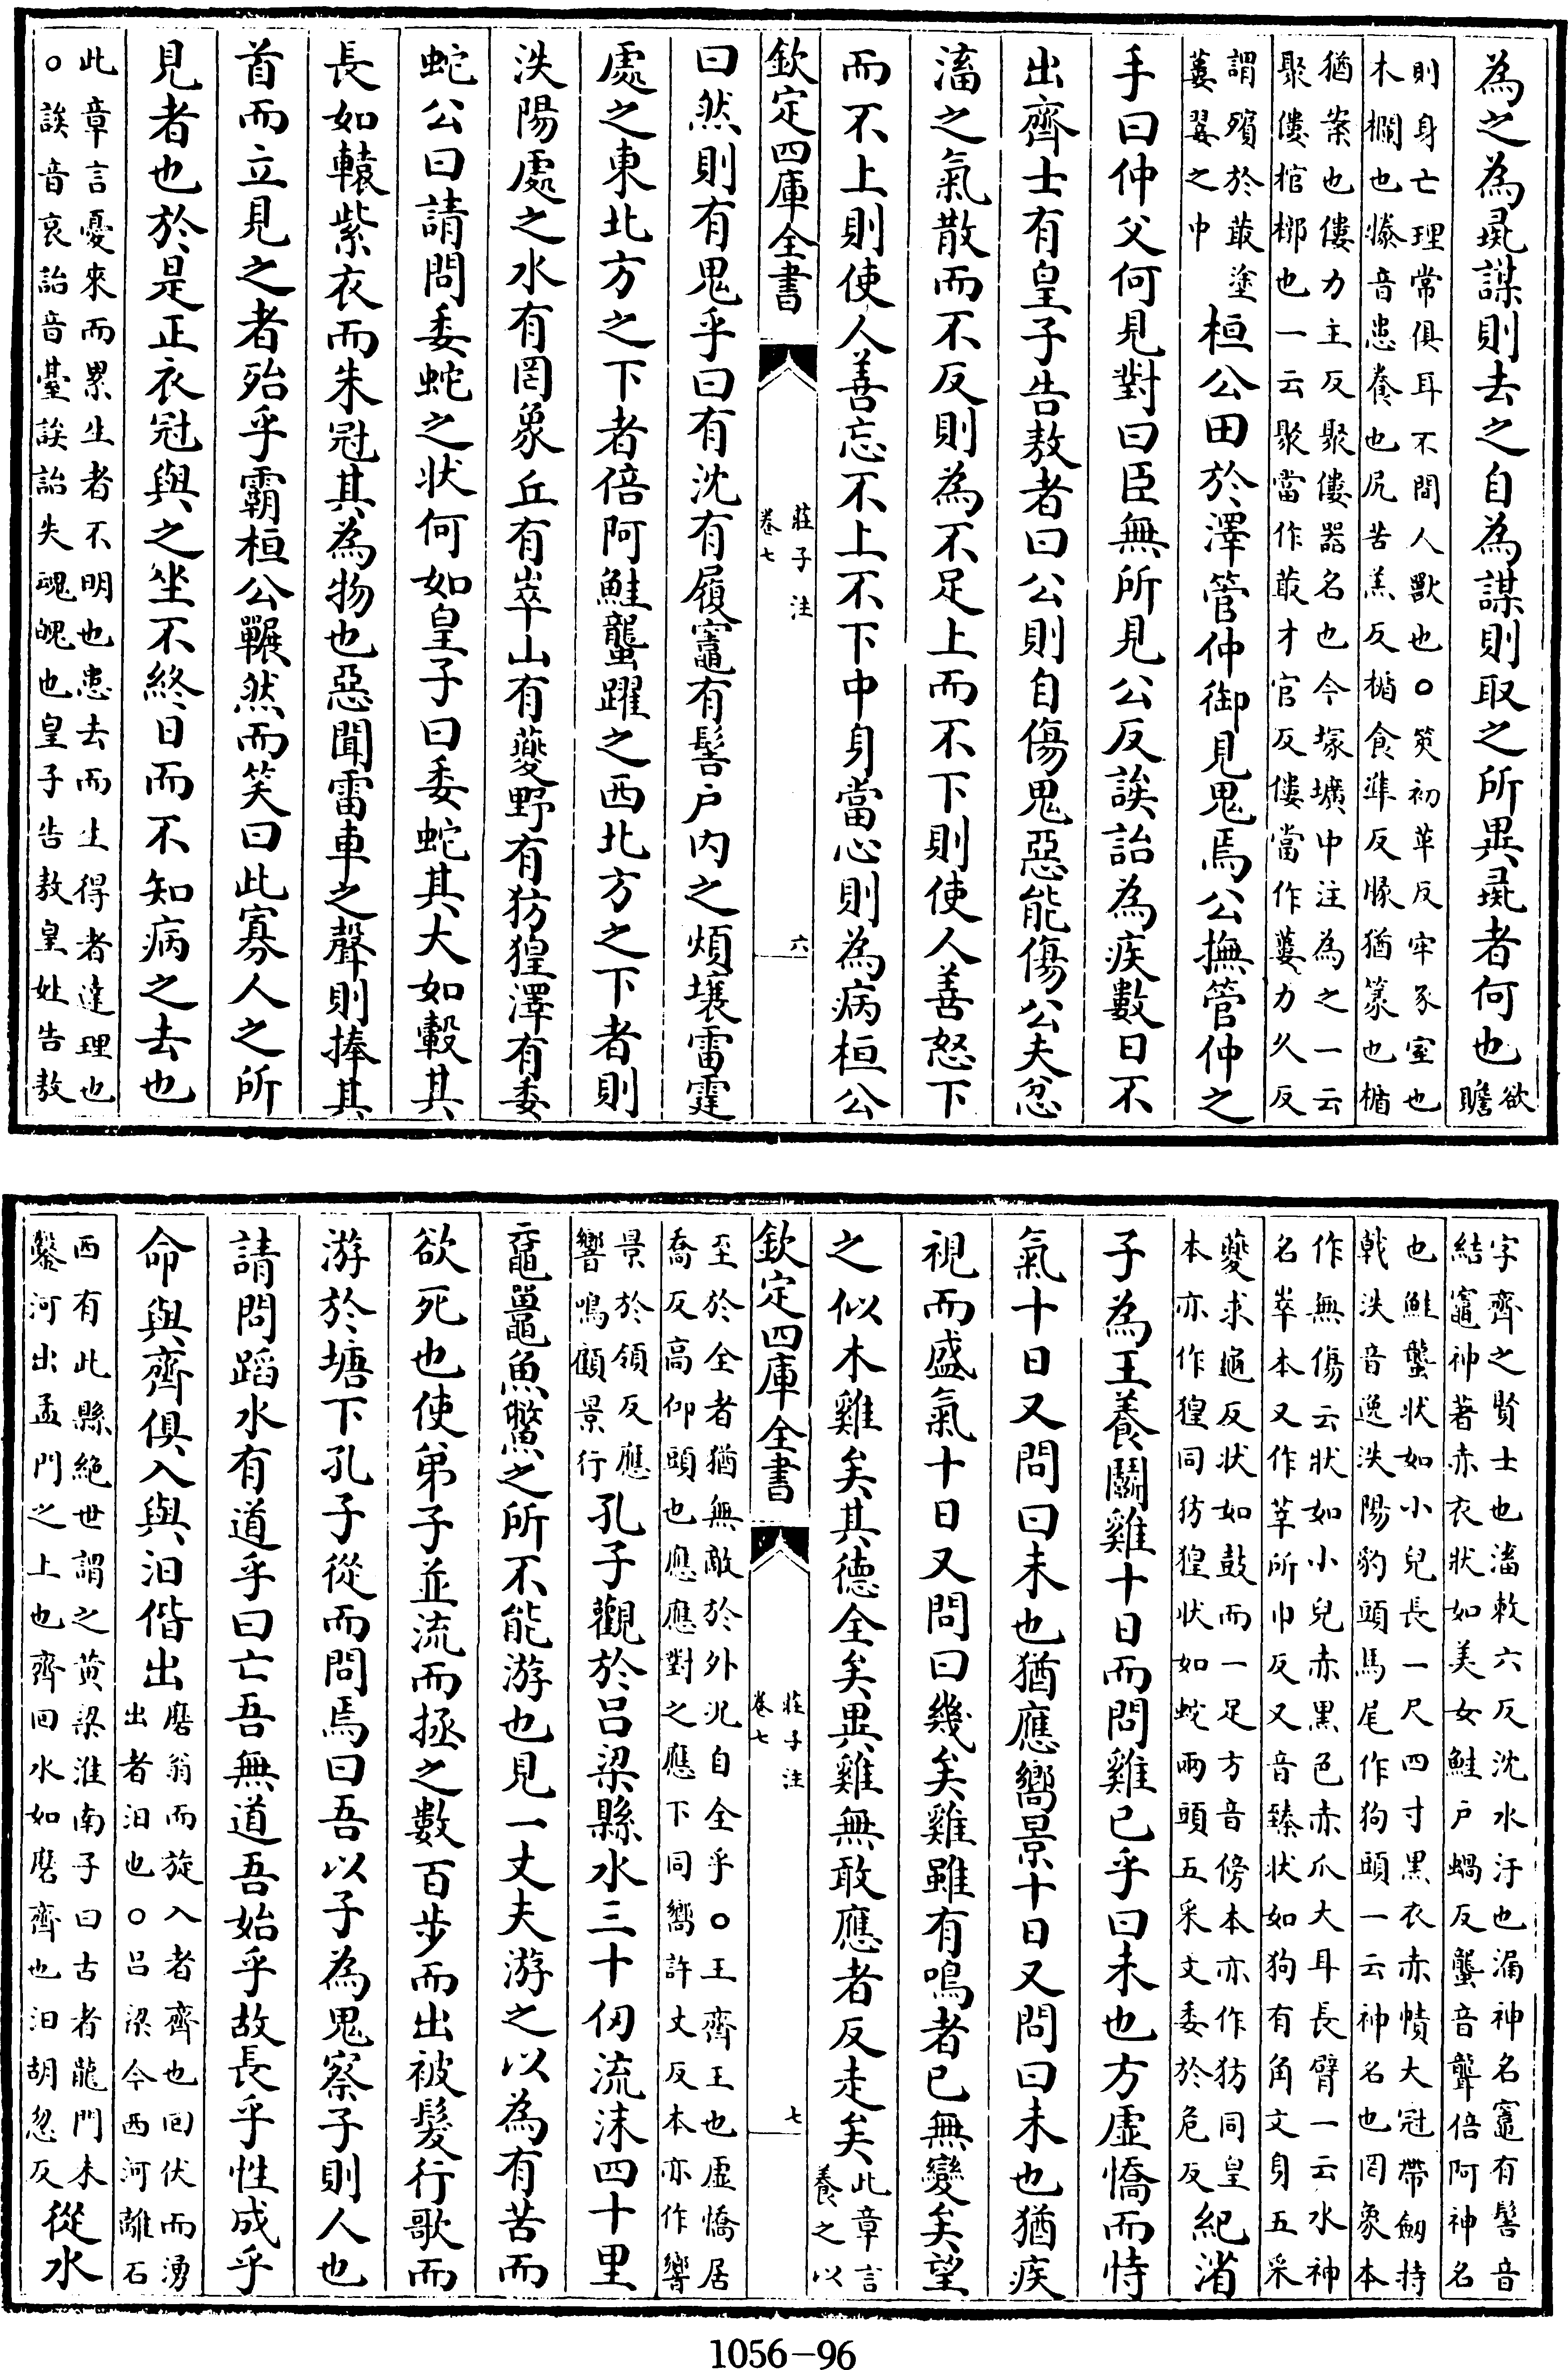 為之為彘謀則去之自為謀則取之所異彘者何也欲
瞻
則身亡理常俱耳不間人獸也○筴初革反牢豕室也
木欄也㹖音患養也尻苦羔反楯食準反腞猶篆也楯
猶案也僂力主反聚僂器名也今塚壙中注為之一云
聚僂棺槨也一云聚當作菆才官反僂當作蔞力久反
謂殯於菆塗
蔞翣之中
桓公田於澤管仲御見鬼焉公撫管仲之
手曰仲父何見對曰臣無所見公反誒詒為疾數日不
出齊士有皇子告敖者曰公則自傷鬼惡能傷公夫忿
滀之氣散而不反則為不足上而不下則使人善怒下
而不上則使人善忘不上不下中身當心則為病桓公
欽定四庫全書
莊子注
卷七
六
曰然則有鬼乎曰有沈有履竈有髻户内之煩壤雷霆
處之東北方之下者倍阿鮭蠪躍之西北方之下者則
泆陽處之水有罔象丘有峷山有夔野有彷徨澤有委
蛇公曰請問委蛇之狀何如皇子曰委蛇其大如轂其
長如轅紫衣而朱冠其為物也惡聞雷車之聲則捧其
首而立見之者殆乎霸桓公囅然而笑曰此寡人之所
見者也於是正衣冠與之坐不終日而不知病之去也
此章言憂來而累生者不明也患去而生得者達理也
○誒音哀詒音臺誒詒失魂魄也皇子告敖皇姓告敖
字齊之賢士也滀敕六反沈水汙也漏神名竈有髻音
結竈神著赤衣狀如美女鮭户蝸反蠪音聾倍阿神名
也鮭蠪狀如小兒長一尺四寸黑衣赤幘大冠帶劒持
戟泆音逸泆陽豹頭馬尾作狗頭一云神名也罔象本
作無傷云狀如小兒赤黑色赤爪大耳長臂一云水神
名峷本又作莘所巾反又音臻狀如狗有角文身五采
夔求龜反狀如鼓而一足方音傍本亦作彷同皇
本亦作徨同彷徨狀如蛇兩頭五采文委於危反
紀渻
子為王養鬭雞十日而問雞已乎曰未也方虛憍而恃
氣十日又問曰未也猶應嚮景十日又問曰未也猶疾
視而盛氣十日又問曰幾矣雞雖有鳴者已無變矣望
之似木雞矣其德全矣異雞無敢應者反走矣此章言
養之以
欽定四庫全書
莊子注
卷七
七
至於全者猶無敵於外况自全乎○王齊王也虛憍居
喬反高仰頭也應應對之應下同嚮許丈反本亦作響
景於領反應
響鳴顧景行
孔子觀於吕梁縣水三十仞流沫四十里
黿鼉魚鱉之所不能游也見一丈夫游之以為有苦而
欲死也使弟子並流而拯之數百步而出被髮行歌而
游於塘下孔子從而問焉曰吾以子為鬼察子則人也
請問蹈水有道乎曰亡吾無道吾始乎故長乎性成乎
命與齊俱入與汩偕出磨翁而旋入者齊也回伏而湧
出者汩也○吕梁今西河離石
西有此縣絶世謂之黄梁淮南子曰古者龍門未
鑿河出孟門之上也齊回水如磨齊也汩胡忽反
從水
1056-96